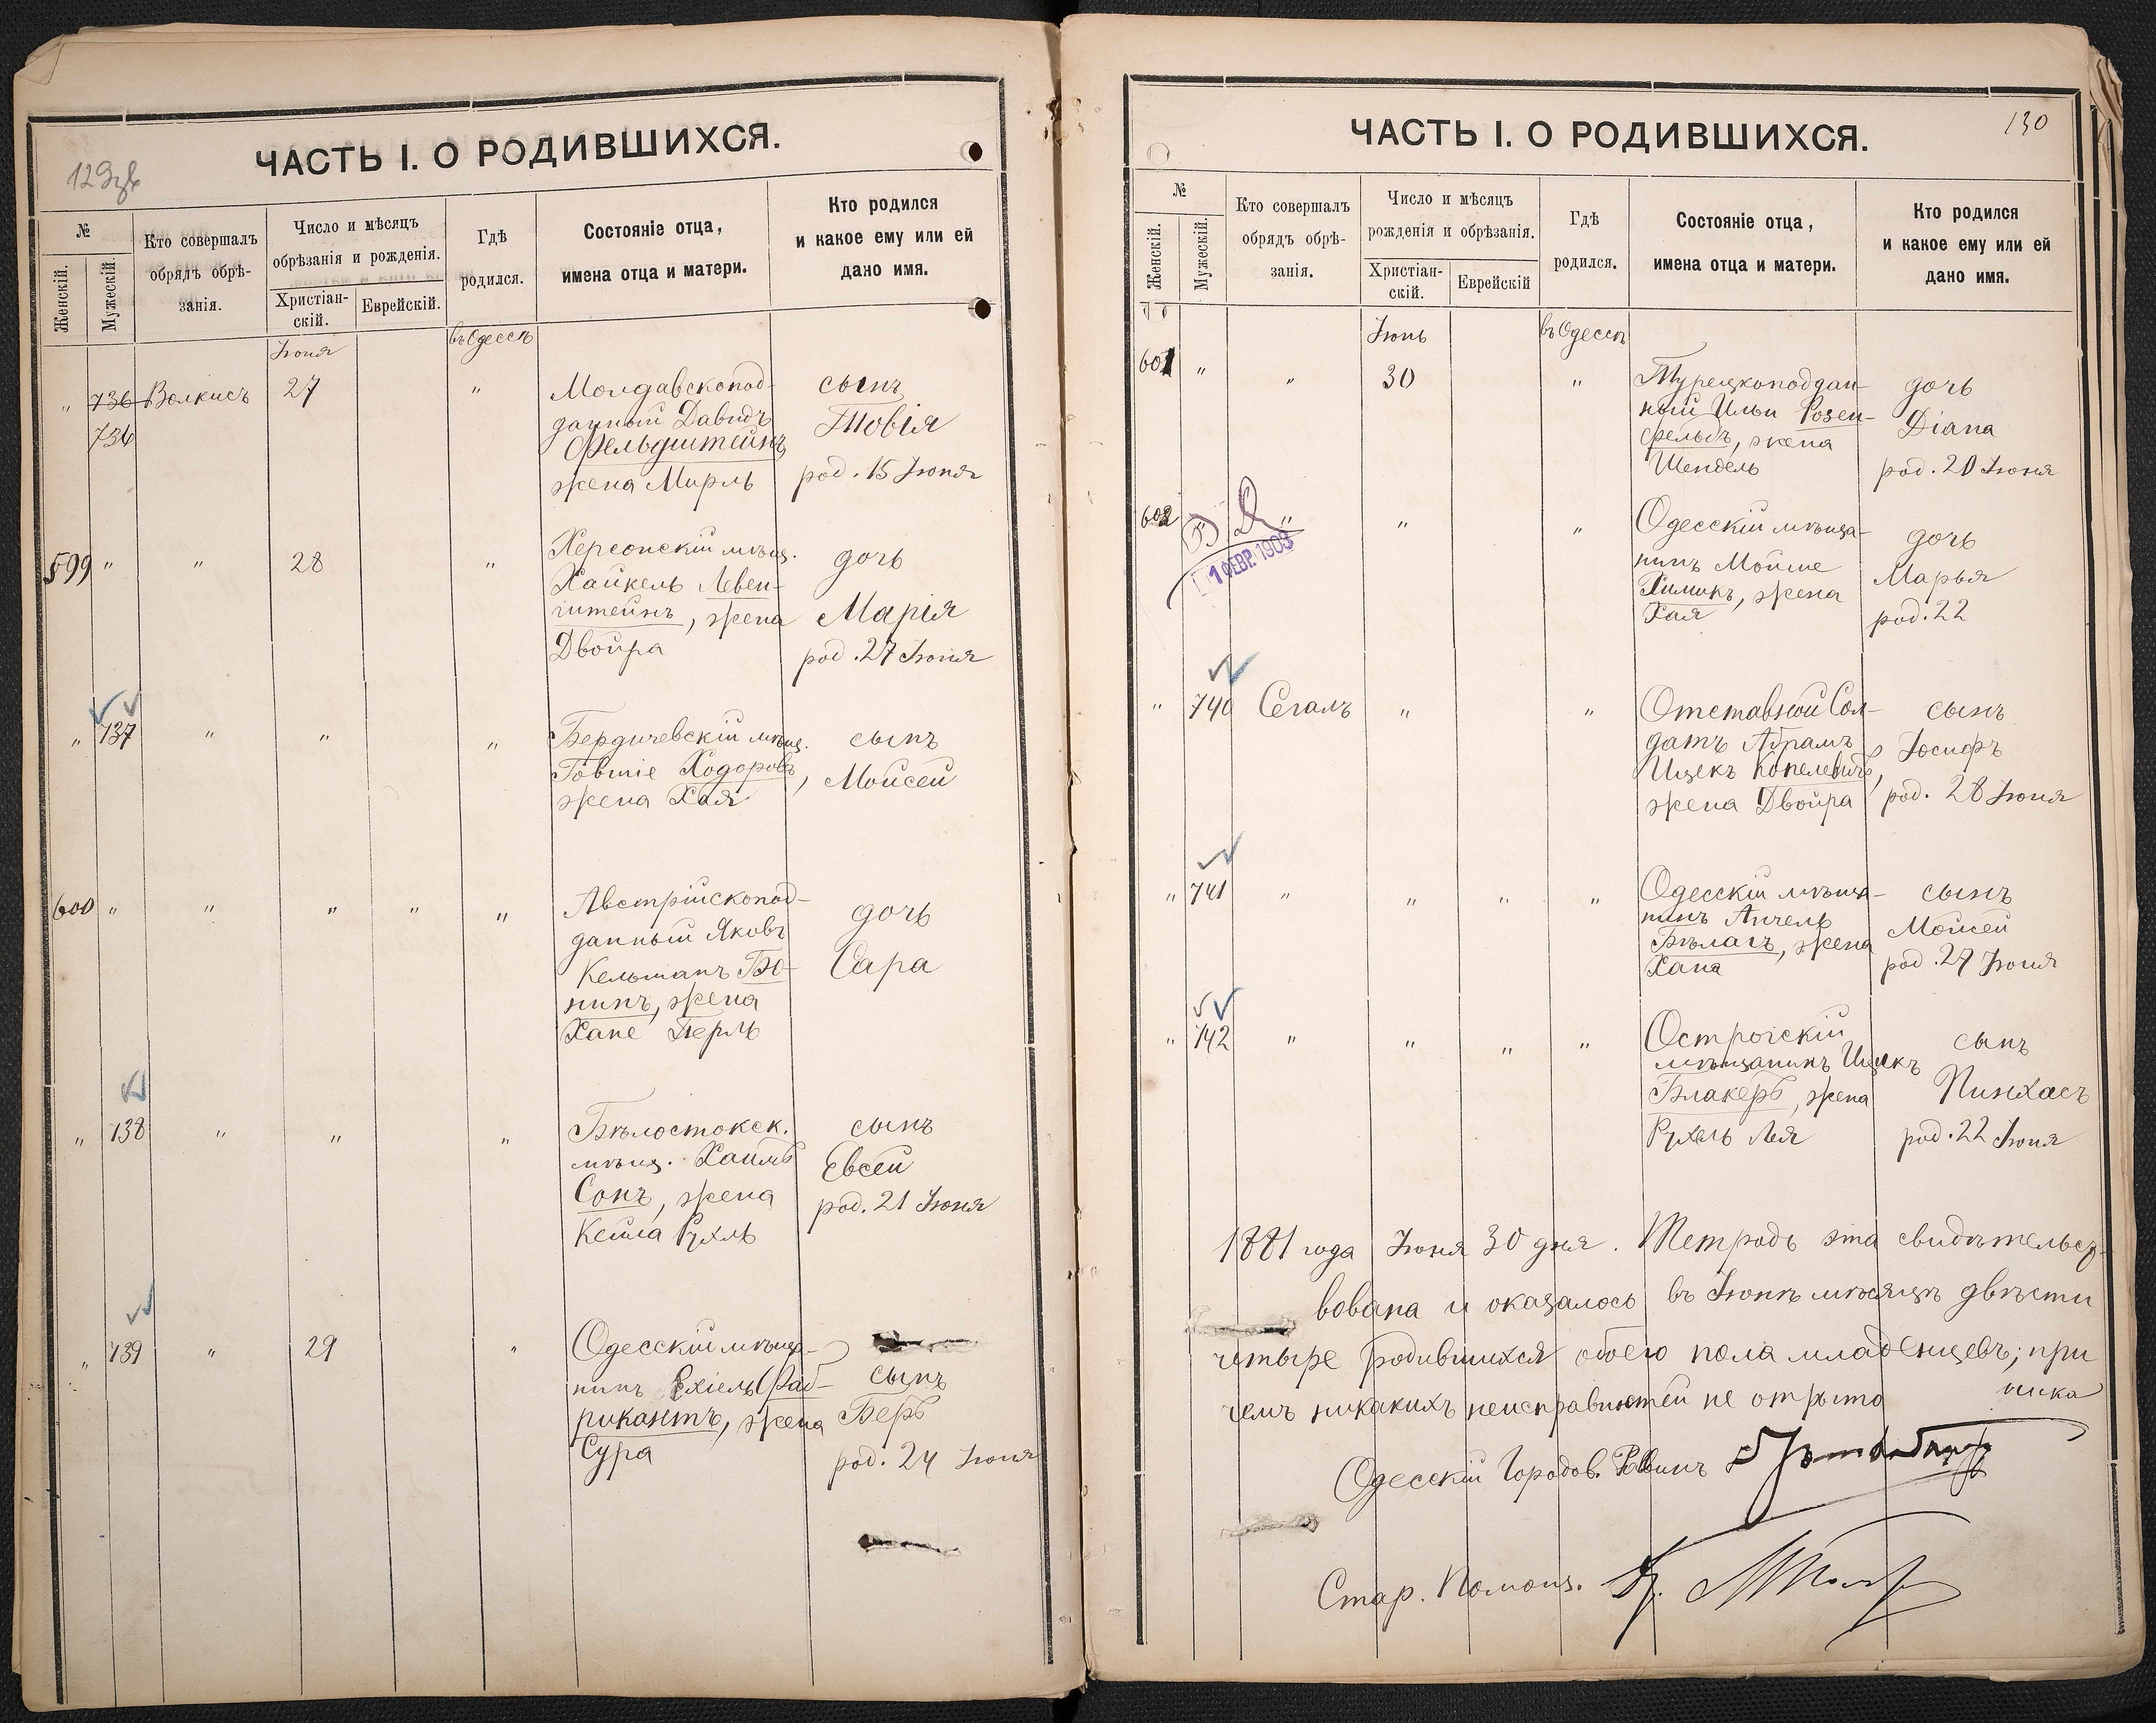 ЧАСТЬ I. О РОДИВШИХСЯ.
№
Женскій.
Мужескій.
Кто совершалъ
обрядъ обрѣ-
занія.
Число и мѣсяцъ
обрѣзанія и рожденія.
Христіан-
скій.
Еврейскій.
Гдѣ
родился.
Состояніе отца,
имена отца и матери.
Кто родился
и какое ему или ей
дано имя.
Іюня
въ Одессѣ
" 736 Волкисъ 27 " Молдавскопод-
736
данный Давидъ
Фельдштейнъ
жена Мирль
сынъ
Товія
род. 15 Іюня
599 " " 28 " Херсонскій мѣщ.
Хайкель Левен-
штейнъ, жена
Двойра
дочь
Марія
род. 27 Іюня
" 737 " " " Бердичевскій мѣщ.
Говшіе Ходоровъ,
жена Хая
сынъ
Мойсей
600 " " " " " Австрійскопод-
данный Яковъ
Кельманъ Бо-
нинъ, жена
Хане Перль
дочь
Сара
" 738 " " " Бѣлостокск.
мѣщ. Хаимъ
Сонъ, жена
Кейла Рухль
сынъ
Евсей
род. 21 Іюня
" 739 " 29 " Одесскій мѣща-
нинъ Ехіель Фаб-
рикантъ, жена
Сура
сынъ
Беръ
род. 24 Іюня
130
ЧАСТЬ I. О РОДИВШИХСЯ.
№
Женскій.
Мужескій.
Кто совершалъ
обрядъ обрѣ-
занія.
Число и мѣсяцъ
рожденія и обрѣзанія.
Христіан-
скій.
Еврейскій
Гдѣ
родился.
Состояніе отца,
имена отца и матери.
Кто родился
и какое ему или ей
дано имя.
Іюнь
въ Одессѣ
601 " " 30 " Турецкоподдан-
ный Ильи Розен-
фельдъ, жена
Шендель
дочь
Діана
род. 20 Іюня
602 " " " Одесскій мѣща-
нинъ Мойше
Химикъ, жена
Хая
дочь
Марья
род. 22
1 ФЕВР. 1903
" 740 Сегалъ " " Отставной Сол-
датъ Абрамъ
Ицекъ Копелевичъ,
жена Двойра
сынъ
Іосифъ
род. 28 Іюня
" 741 " " " " Одесскій мѣща-
нинъ Анчель
Бѣлагъ, жена
Хана
сынъ
Мойсей
род. 27 Іюня
" 742 " " " " Острогскій
мѣщанинъ Ицекъ
Блакеръ, жена
Рухель Лея
сынъ
Пинхасъ
род. 22 Іюня
1881 года Іюня 30 дня. Тетрадь эта свидѣтельст-
вована и оказалось въ Іюнѣ мѣсяцѣ двѣсти
четыре родившихся обоего пола младенцевъ; при
чемъ никакихъ неисправностей не открыто
Одесскій Городов. Раввинъ
Стар. Помощ.